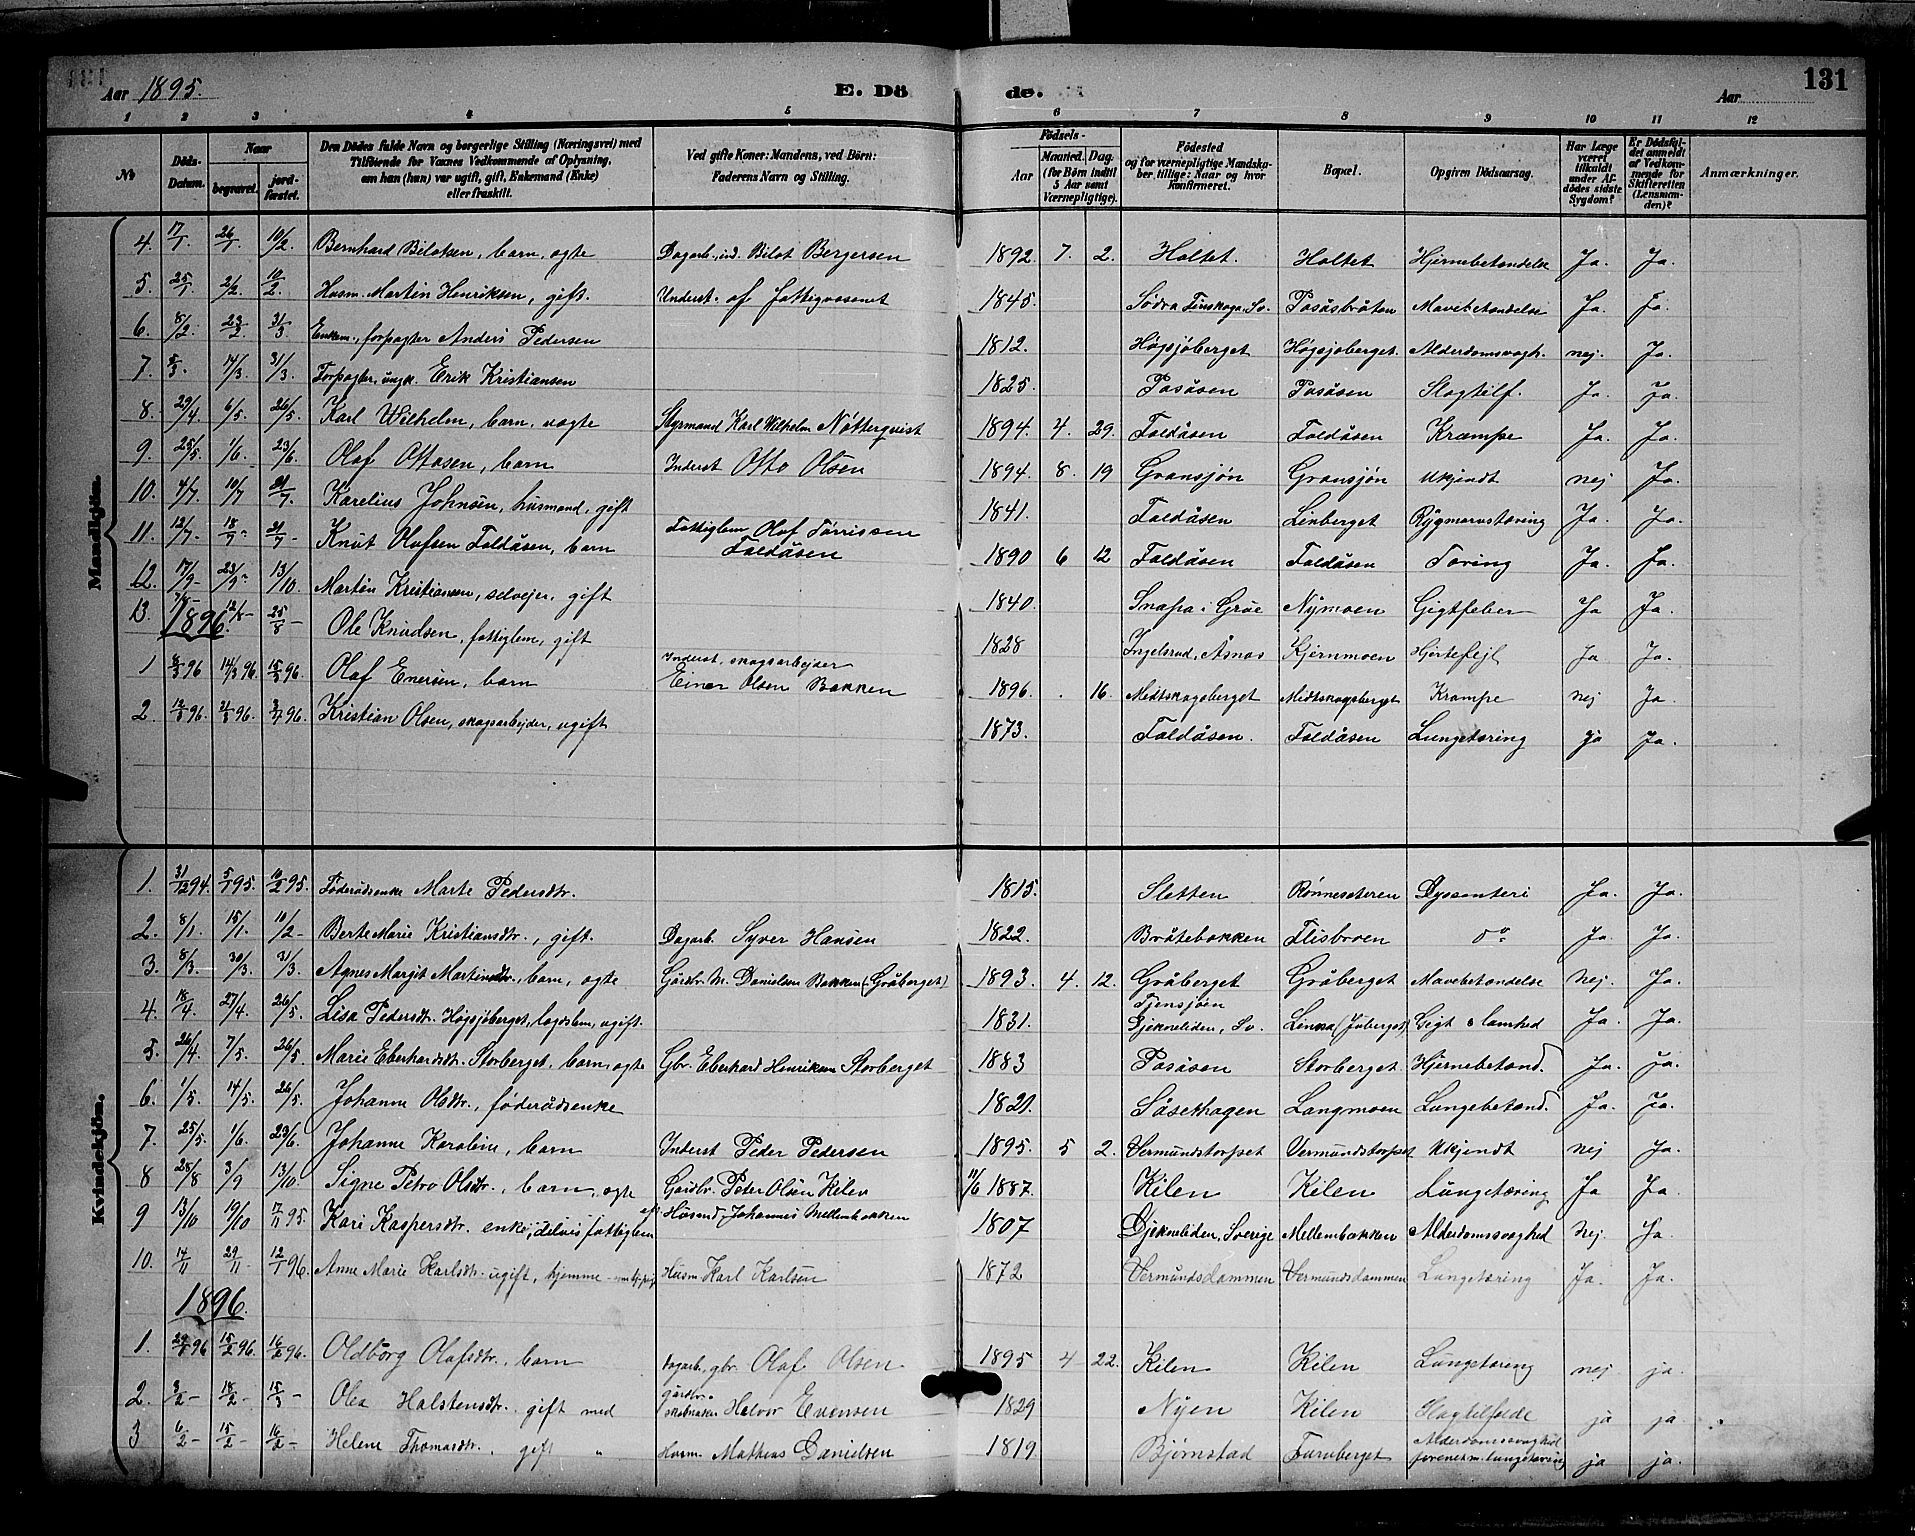 Aar 1895.
E. Döde.
131
Aar
1 2 3 4 5 6 7 8 9 10 11 12
No
Döds-Datum.
Naar
begravet.
jordfæstet.
Den Dödes fulde Navn og borgerlige Stilling (Næringsvei) med Tilföiende for Voxnes Vedkommende af Oplysning, om han (hun) var ugift, gift, Enkemand (Enke) eller fraskilt.
Ved gifte Koner: Mandens, ved Börn: Faderens Navn og Stilling.
Födsels-
Aar
Maaned. Dag.
(for Börn indtil 5 Aar samt Værnepligtige).
Födested og for værnepligtige Mandskaber, tillige: Naar og hvor konfirmeret.
Bopæl.
Opgiven Dödsaarsag.
Har Læge været tilkaldt under Afdödes sidste Sygdom?
Er Dödsfaldet anmeldt af Vedkommende for Skifteretten (Lensmanden)?
Anmærkninger.
Mandkjön.
4. 17/1. 26/1. 10/2 Bernhard Bilotsen, barn, ægte Dagarb., ind. Bilot Bergersen 1892 7. 2. Holtet. Holtet Hjernebetændelse Ja. Ja.
5. 25/1. 2/2. 10/2. Husm. Martin Henriksen, gift. Underst. af fattigvæsenet 1845. Södra Finskoga, Sv. Posåsbråten Mavebetændelse Ja. Ja.
6. 8/2. 23/2 31/3 Enkem., forpagter Anders Pedersen 1812. Högsjöberget Högsjoberget. Alderdomssvagh. nej. Ja.
7. 5/3. 14/3. 31/3. Forpagter, ungk. Erik Kristiansen 1825. Posåsen Posåsen Slagtilf. Ja. Ja.
8. 29/4 6/5. 26/5. Karl Wilhelm, barn, uægte Styrmand Karl Wilhelm Nötterqvist 1894. 4. 29. Foldåsen Foldåsen Krampe Ja. Ja.
9. 25/5. 1/6. 23/6. Olaf Ottosen, barn Inderst Otto Olsen 1894. 8. 19 Gransjön Gransjön Ukjendt nej Ja.
10. 4/7. 10/7 21/7. Karelius Johnsen, husmand, gift 1841. Foldåsen Linberget Rygmarvstæring Ja. Ja.
11. 12/7. 18/7- 21/7- Knut Olafsen Foldåsen, barn Fattiglem Olaf Törrissen Foldåsen 1890 6 12 Foldåsen Foldåsen Tæring Ja. Ja.
12. 17/9- 23/9- 13/10. Martin Kristiansen, selvejer, gift 1840. Snapa i Grue Nymoen Gigtfeber Ja Ja.
13. 12/8- 25/8- Ole Knudsen, fattiglem, gift 1828 Ingelsrud, Åsnes Kjernmoen Hjertefejl Ja Ja.
1896.
1 8/3 96 14/3 96. 15/3 96. Olaf Enersen, barn Inderst, skogsarbejder Einer Olsen Bakken 1896. . 16. Medtskogsberget Medtskogsberget Krampe nej Ja.
2. 12/3 96. 21/3 96. 3/4 96. Kristian Olsen, skogsarbejder, ugift 1873. Foldåsen. Foldåsen Lungetæring ja Ja.
Kvindekjön.
1. 31/12 94. 5/1 95. 10/2 95. Föderådsenke Marte Pedersdtr. 1815. Sletten Rönneseteren Dyssenteri Ja. Ja.
2. 8/1. 15/1. 10/2- Berte Marie Kristiansdtr., gift. Dagarb. Syver Hansen 1822. Bråtebakken Flisbroen do. Ja. Ja.
3. 8/3. 30/3. 31/3. Agnes Margit Martinsdtr., barn, ægte Gårdbr. M. Danielsen Bakken (Gråberget) 1893. 4. 12. Gråberget Gråberget Mavebetændelse nej. Ja.
4. 18/4. 27/4. 26/5. Lisa Pedersdtr. Högsjöberget, lægdslem, ugift. 1831. Djekneliden, Sv. Linna Gigt & lamhed Ja. Ja.
5. 26/4. 7/5. 26/5 Marie Eberhardsdtr. Storberget, barn, ægte Gbr. Eberhard Henriksen Storberget 1883 Posåsen Storberget Hjernebetænd. Ja. ja.
6. 1/5. 14/5. 26/5. Johanne Olsdtr., föderådsenke 1821. Såsethagen Langmoen Lungebetænd. Ja. Ja.
7. 25/5. 1/6. 23/6. Johanne Karoline, barn Inderst Peder Pedersen 1895. 5 2. Vermundstorpet Vermundstorpet Ukjendt nej Ja.
8 28/8 3/9 13/10. Signe Petra Olsdtr., barn, ægte Gårdbr. Peter Olsen Kilen 10/6 1887. Kilen Kilen Lungetæring Ja Ja.
9 13/10 19/10 17/11 95. Kari Kaspersdtr. enke, delvis fattiglem Husmd. Johannes Mellembakken 1807 Djekneliden, Sverige Mellembakken Alderdomssvaghed nej. Ja.
10. 14/11 29/11- 12/1 96. Anne Marie Karlsdtr. ugift, hjemme Husm. Karl Karlsen 1872 Vermundsdammen Vermundsdammen Lungetæring Ja. Ja.
1896.
1. 29/1 96 15/2 96. 16/2 96. Oldborg Olafsdtr., barn Dagarb., gbr. Olaf Olsen 1895 4 22. Kilen Kilen Lungetæring nej ja.
2. 3/2- 18/2- 15/3- Olea Halstensdtr. gift med gårdbr. Halvor Evensen 1829 Nyen Kilen Slagtilfælde ja ja.
3 6/2- 15/2- 16/2- Helene Thomasdtr. gift " Husm. Mathias Danielsen 1819 Björnstad Furuberget Alderdomssvaghed forenet m. lungetæring ja ja.